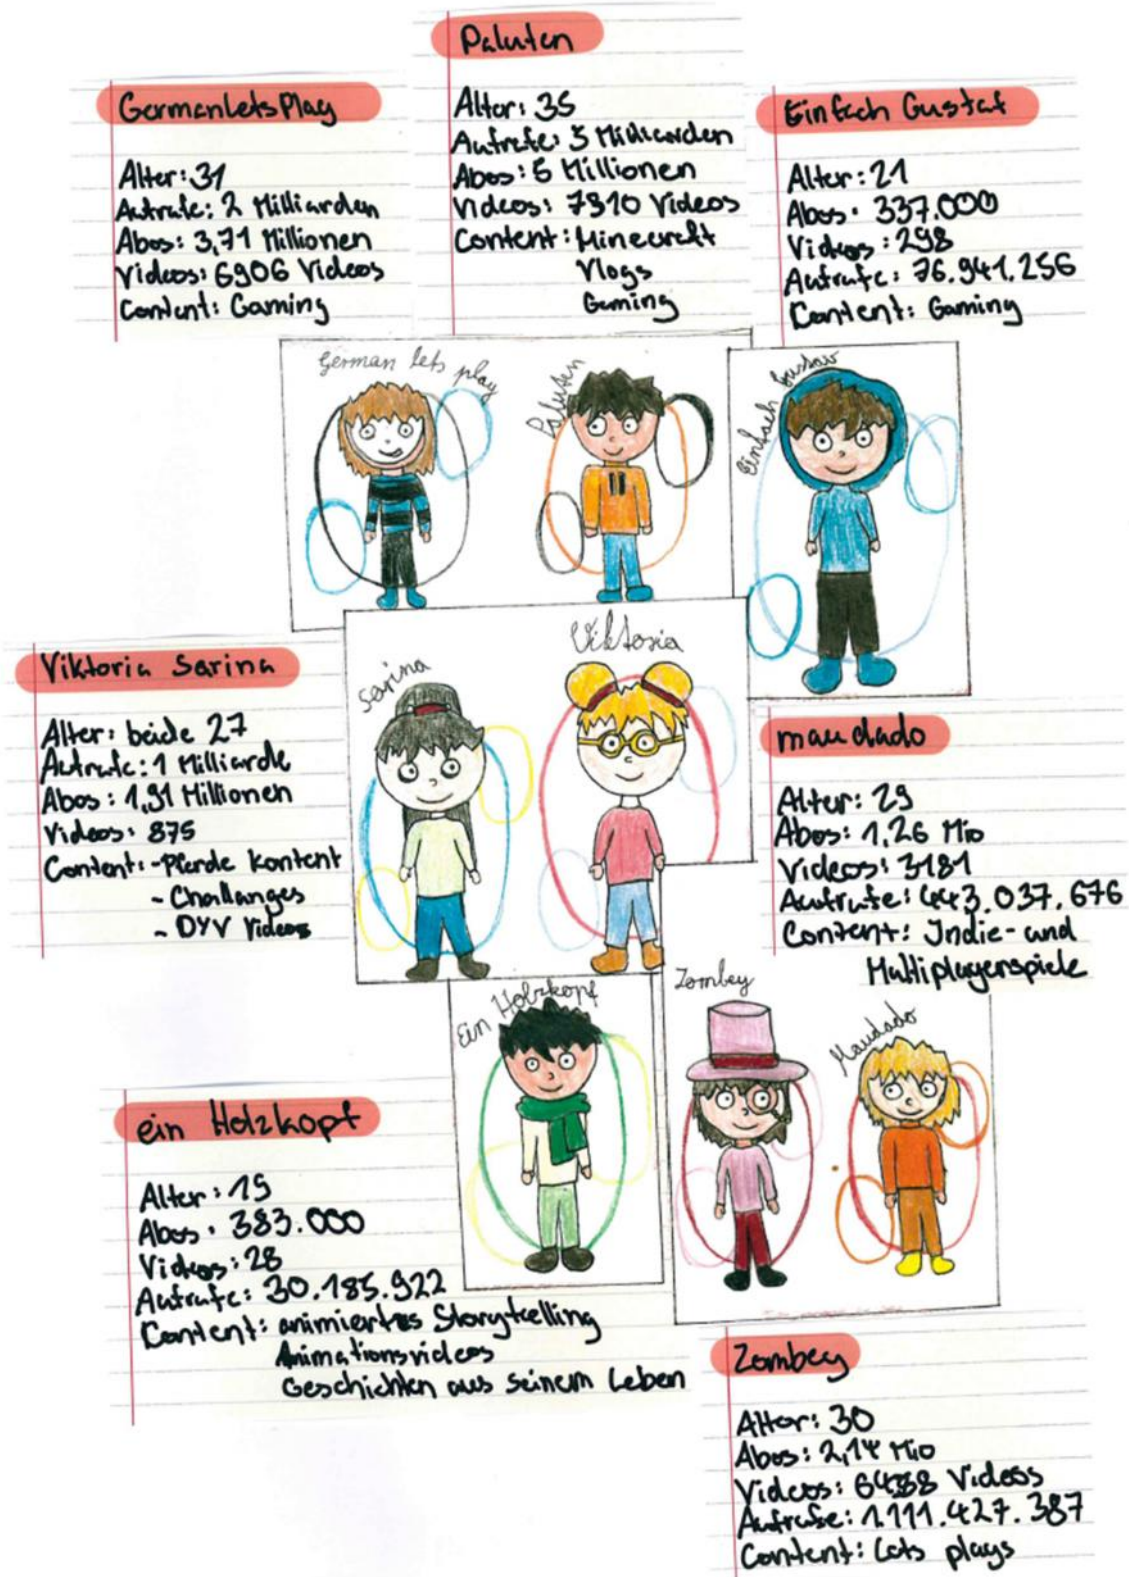 Paluten
Alter: 35
Aufrufe: 5 Milliarden
Abos: 5 Millionen
Videos: 7310 Videos
Content: Minecraft
Vlogs
Gaming
GermanLetsPlay
Alter: 31
Aufrufe: 2 Milliarden
Abos: 3,71 Millionen
Videos: 6906 Videos
Content: Gaming
Einfach Gustaf
Alter: 21
Abos: 337.000
Videos: 298
Aufrufe: 76.941.256
Content: Gaming
German lets play
Paluten
Einfach Gustav
Viktoria Sarina
Alter: beide 27
Aufrufe: 1 Milliarde
Abos: 1,91 Millionen
Videos: 875
Content: -Pferde Kontent
- Challanges
- DYV Videos
Sarina
Viktoria
maudado
Alter: 29
Abos: 1,26 Mio
Videos: 3181
Aufrufe: 443.037.676
Content: Indie- und
Multiplayerspiele
Ein Holzkopf
Zombey
Maudado
ein Holzkopf
Alter: 19
Abos: 383.000
Videos: 28
Aufrufe: 30.185.922
Content: animiertes Storytelling
Animationsvideos
Geschichten aus seinem Leben
Zombey
Alter: 30
Abos: 2,14 Mio
Videos: Videos
Aufrufe: 1.111.427.387
Content: Lets plays